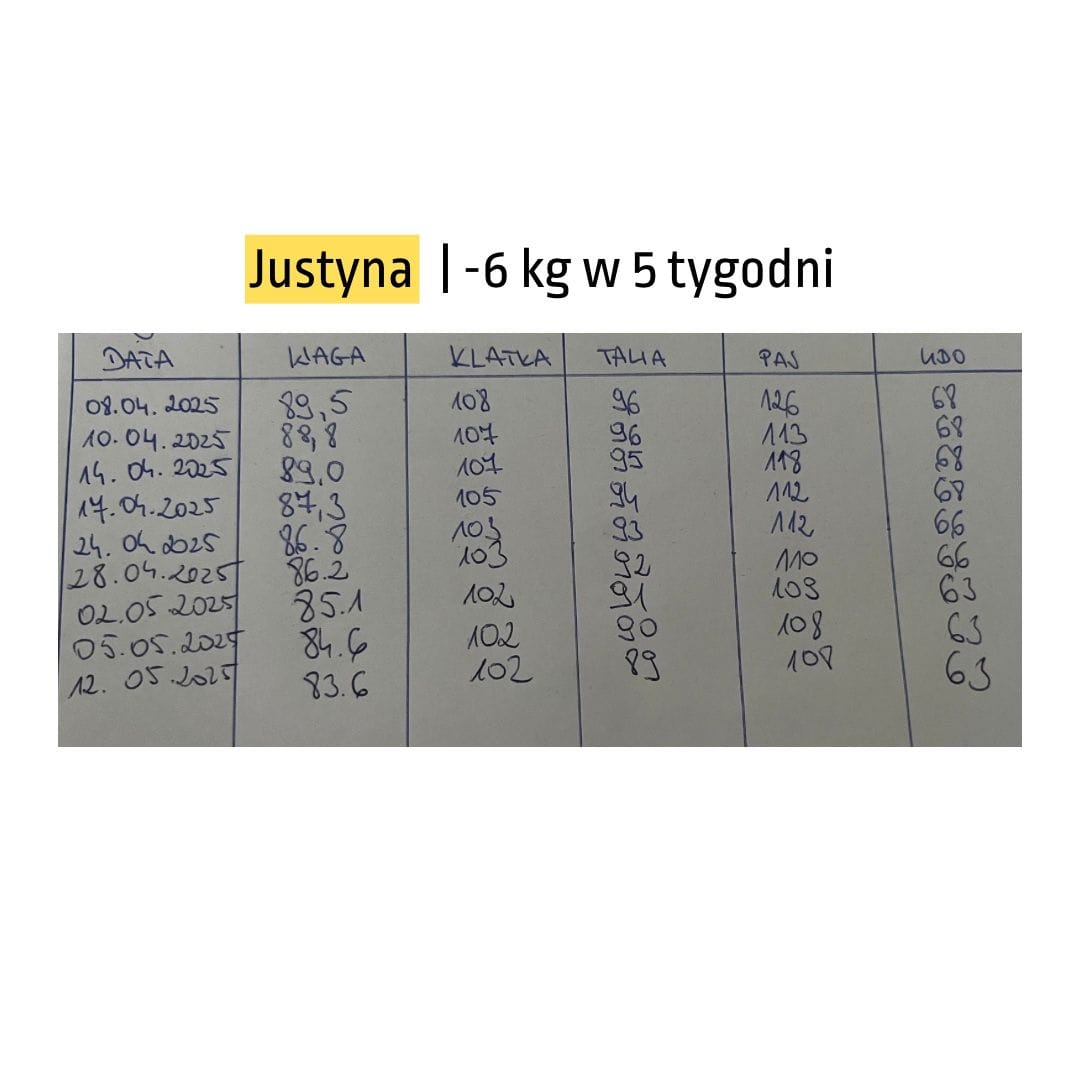 Justyna | -6 kg w 5 tygodni
DATA WAGA KLATKA TALIA PAS UDO
08.04.2025 89,5 108 96 126 68
10.04.2025 88,8 107 96 113 68
14.04.2025 89,0 107 95 118 68
17.04.2025 87,3 105 94 112 68
24.04.2025 86.8 103 93 112 66
28.04.2025 86.2 103 92 110 66
02.05.2025 85.1 102 91 109 63
05.05.2025 84.6 102 90 108 63
12.05.2025 83.6 102 89 108 63